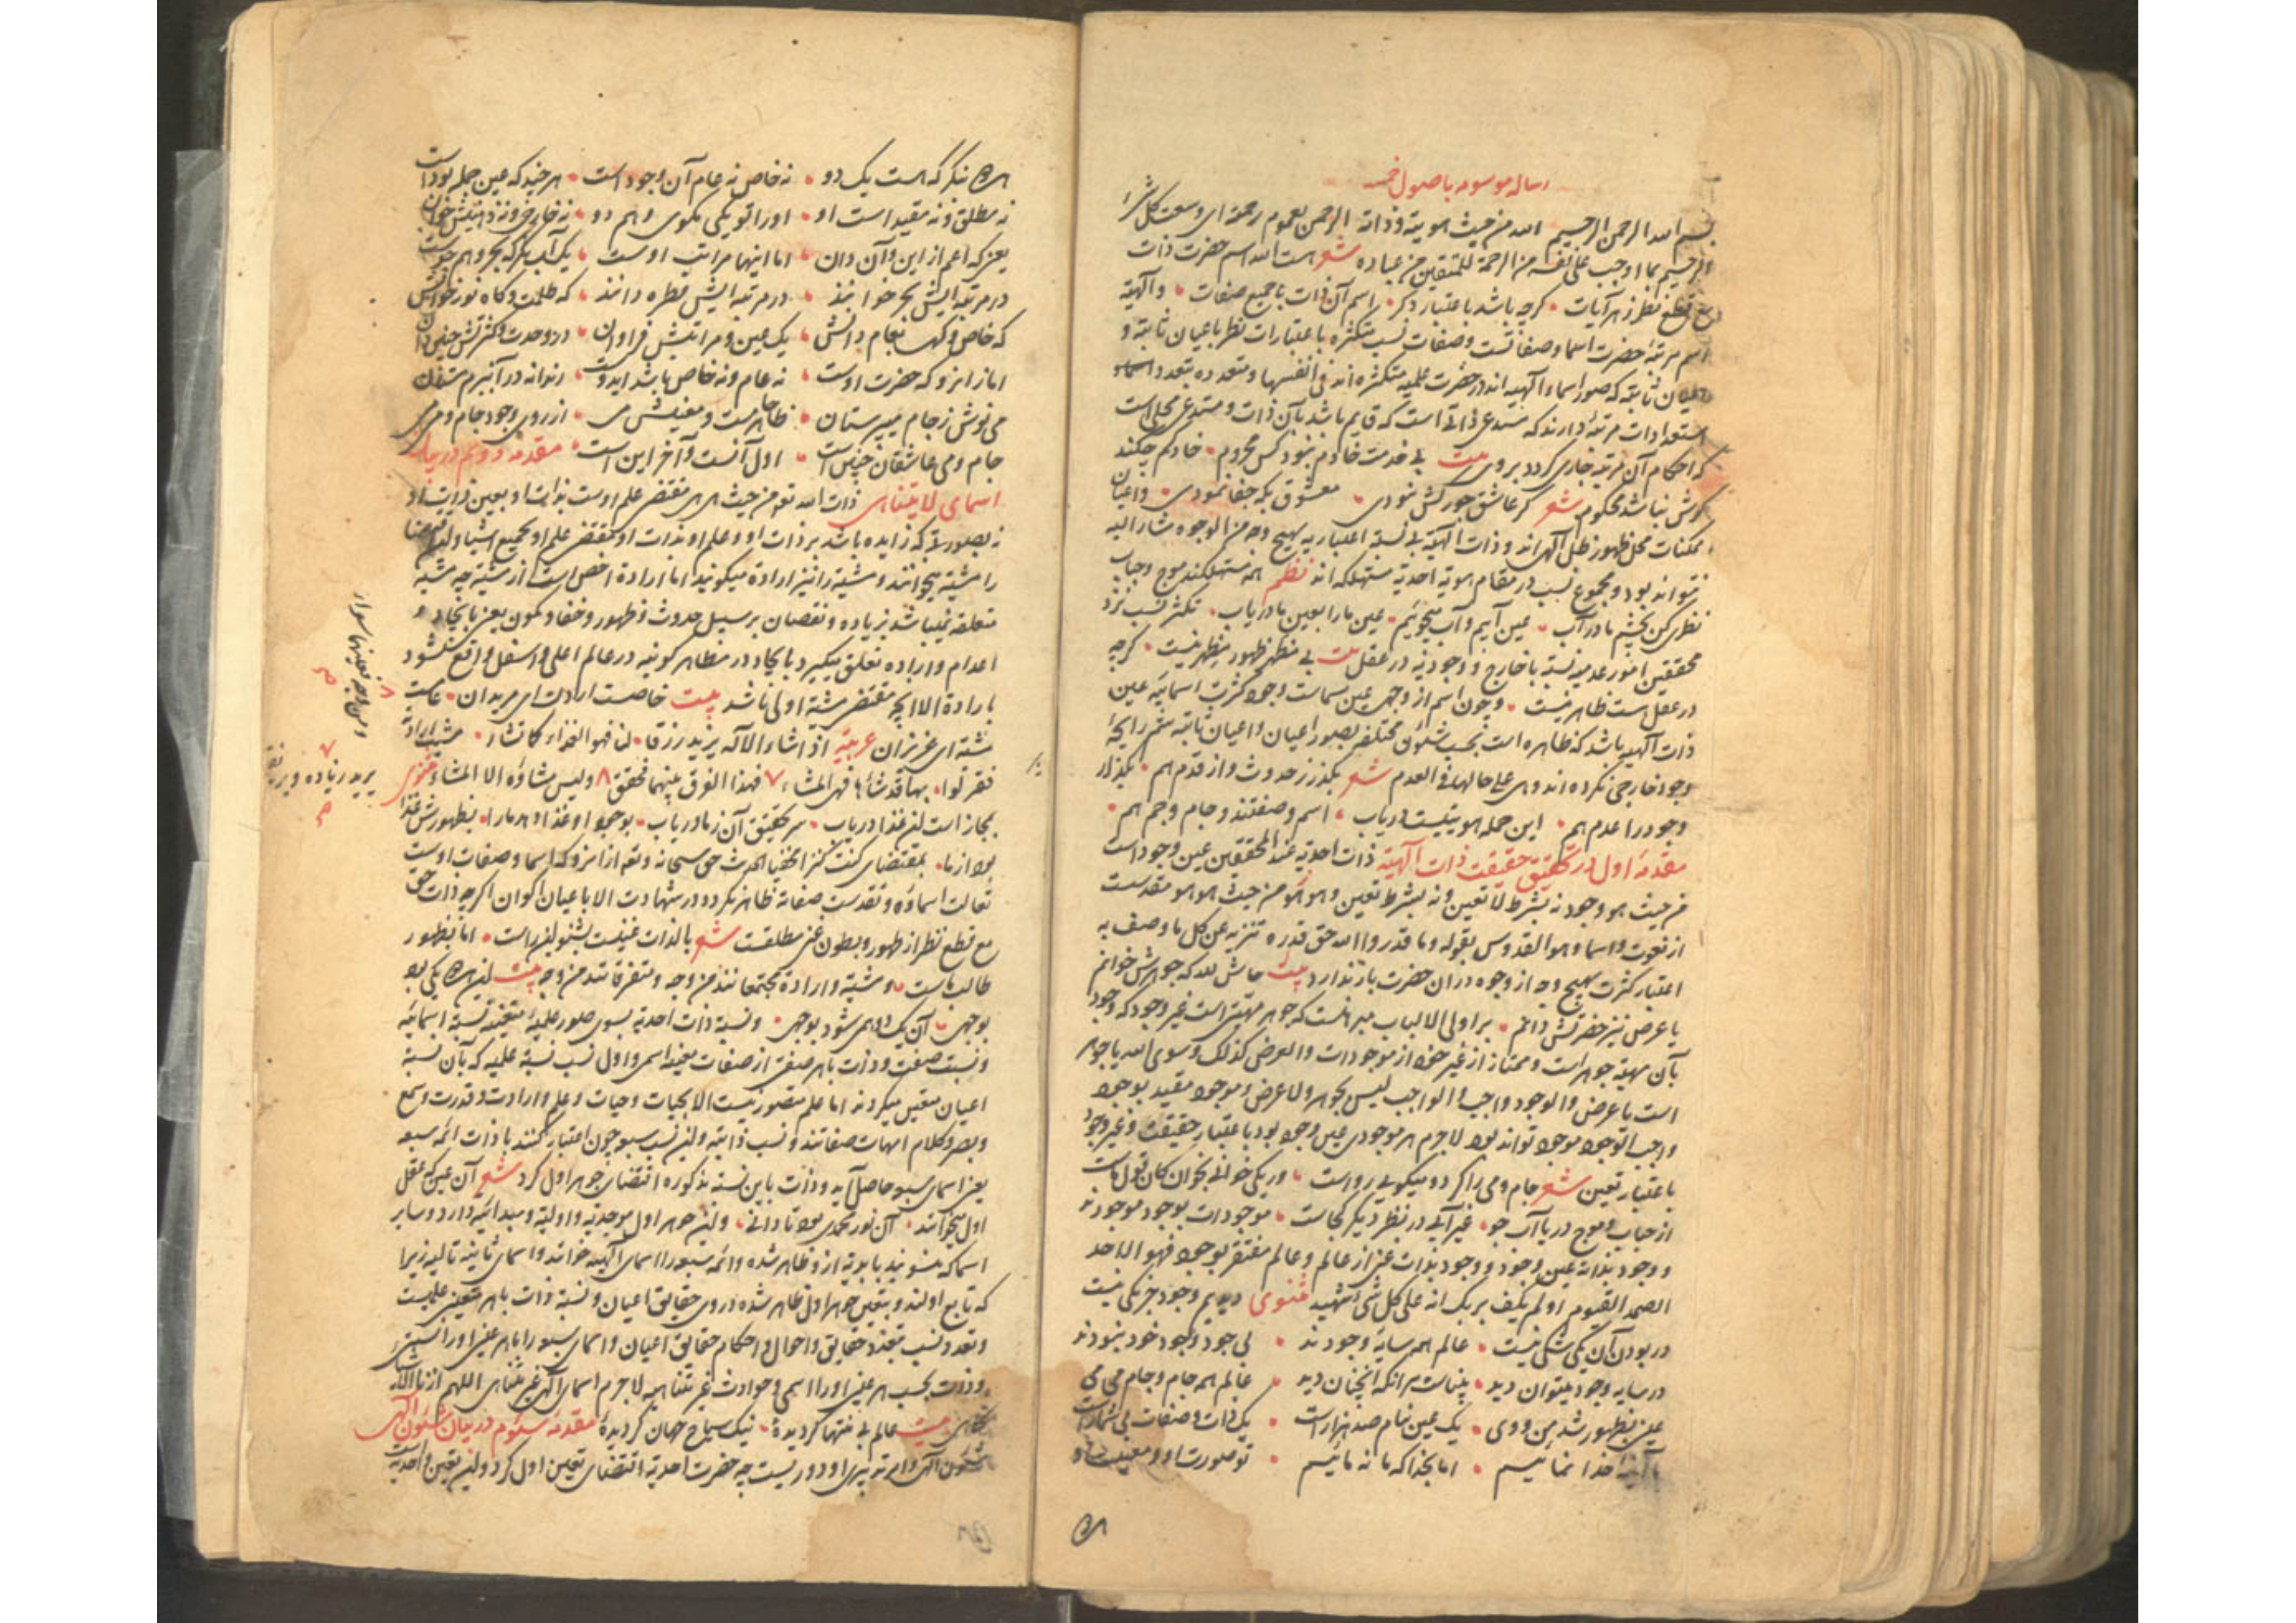 رساله موسومه باصول خمسه
بسم الله الرحمن الرحیم الله من حیث هویته وذاته الرحمن بعموم رحمته ای وسعت کل شئ
الرحیم بما اوجب علی نفسه من الرحمة للمتقین من عباده شعر هست الله اسم حضرت ذات
مع قطع نظر ز هر آیات • گرچه باشد باعتبار دگر • اسم آن ذات با جمیع صفات • والهیة
اسم مرتبهٔ حضرت اسما وصفاتست وصفات نسب متکثره باعتبارات نظر باعیان ثابته و
اعیان ثابته که صور اسماء الهیه اند در حضرت علمیه متکثره اند فی انفسها ومتعدده بتعدد اسماء
استعدادات مرتبهٔ دارند که مستدعی ذاتی است که قایم باشد بآن ذات ومستدعی محلی است
که احکام آن مرتبه جاری گردد بروی بیت بی خدمت خادم نبود کس مخدوم • حاکم چکند
گرش نباشد محکوم شعر گر عاشق جورکش نبودی • معشوق بکه جفا نمودی • واعیان
ممکنات محل ظهور ظل الهی اند وذات الهیة بی نسبة اعتباریه بهیچ وجه من الوجوه مشار الیه
نتواند بود ومجموع نسب در مقام هویة احدیة مستهلکه اند نظم همه مستهلکند موج وحباب
نظری کن بچشم ما در آب • عین آبیم وآب میجوئیم • عین ما را بعین ما دریاب • تکثر نسب نزد
محققین امور عدمیه نسبة با خارج ووجودیه در عقل بیت بی مظهر ظهور مظهر نیست • گرچه
در عقل هست ظاهر نیست • وچون اسم از وجهی عین مسماست وجوه کثرت اسمائیه عین
ذات الهیه باشد که ظاهره است بحسب شئون مختلفه بصور اعیان واعیان ثابته شم رایحهٔ
وجود خارجی نکرده اند وهی علی حالها فی العدم شعر بگذر ز حدوث واز قدم هم • بگذار
وجود را عدم هم • این جمله هویتیست دریاب • اسم وصفتند وجام وجم هم •
مقدمهٔ اول در تحقیق حقیقت ذات الهیة ذات احدیه عند المحققین عین وجود است
من حیث هو وجود نه بشرط لا تعین ونه بشرط تعین وهو هو من حیث هو هو مقدست
از نعوت واسما وهو القدوس بقوله وما قدروا الله حق قدره تنزیه عن کل ما وصف به
اعتبار کثرت بهیچ وجه از وجوه در آن حضرت باز ندارد بیت حاش لله که جوهرش خوانم
یا عرض نیز حضرتش دانم • بر اولی الالباب مبرهنست که جوهر مهیتی است غیر وجود که وجود
بآن مهیة جوهر است وممتاز از غیر خود از موجودات والعرض کذلک وسوی الله یا جوهر
است یا عرض والوجود واجب والواجب لیس بجوهر ولا عرض وموجود مقید بوجود
واجب الوجود موجود تواند بود لاجرم هر موجودی عین وجود بود باعتبار حقیقت وغیر وجود
باعتبار تعین شعر جام ومی را گر دو میگوئی رواست • ور یکی خوانی بخوان کان قول ماست
از حباب وموج دریا آب جو • غیر آبی در نظر دیگر کجاست • موجودات بوجود موجودند
ووجود بذاته عین وجود ووجود بذات غنی از عالم وعالم مفتقر بوجود فهو الواحد
الصمد القیوم اولم یکف بربک انه علی کل شئ شهید مثنوی دیدیم وجود جز یکی نیست
در بودن آن یکی شکی نیست • عالم همه سایهٔ وجودند • بی جود وجود خود نبودند
در سایه وجود میتوان دید • بیناست هر آنکه آنچنان دید • عالم همه جام وجام می می
عینی بظهور شد من ووی • یک عین بنام صد هزار است • یک ذات وصفات بی شمار است
ما آینهٔ خدا نمائیم • اما بخدا که ما نه مائیم • تو صورت او ومعنیت او
هر دو
هر دو نگر که هست یک دو • نه خاص نه عام آن وجود است • هر چند که عین جمله بود است
نه مطلق ونه مقید است او • او را تو یکی مگوی وهم دو • نه خارجی ونه ذهنیش خوان
یعنی که اعم از این وآن دان • اما اینها مراتب اوست • یک آب نگر که بحر وهم جوست
در مرتبه ایش بحر خوانند • در مرتبه ایش قطره دانند • گه ظلمت وگاه نور خوانش
گه خاص وگهی بعام دانش • یک عین ومراتبش فراوان • در وحدت وکثرتش چنین دان
اما ز انرو که حضرت اوست • نه عام ونه خاص باشد ایدوست • رندانه در آ ببزم مستان
می نوش ز جام میپرستان • ظاهر جامست ومعنیش می • از روی وجود جام ومی می
جام ومی عاشقان چنین است • اول آنست وآخر این است • مقدمهٔ دوم در بیان
اسمای لا یتناهی ذات الله تع من حیث هی هی مقتضی علم اوست بذات او بعین ذات او
نه بصورتی که زایده باشد بر ذات او وعلم او بذات او مقتضی علم او بجمیع اشیا واین اقتضا
را مشیة میخوانند ومشیة را نیز ارادة میگویند اما ارادة اخص است از مشیة چه مشیة
متعلقه میباشد بزیاده ونقصان بر سبیل حدوث وظهور وخفا وکمون یعنی بایجاد و
اعدام وارادة تعلق میگیرد بایجاد در مظاهر کونیه در عالم اعلی واسفل وواقع نشود
بارادة الا آنچه مقتضی مشیة اولی باشد بیت خاصست ارادت ای مریدان • عامست
مشیة ای عزیزان عربیه اذا شاء الاله یرید رزقا • لنا فهو الغذاء کما نشاء • مشیت ارادة
فقولوا • بها قد شاءها فهی المشاء ٧ فهذا الفرق بینهما فحقق ٨ ولیس مشاؤه الا المشاء مثنوی
مجاز است این غذا دریاب • سر تحقیق آن ز ما دریاب • بوجود او غذا دهد ما را • بظهورش غذا
بود از ما • بمقتضای کنت کنزا مخفیا الحدیث حق سبحانه وتع از انرو که اسما وصفات اوست
تعالت اسماؤه وتقدست صفاته ظاهر نگردد در شهادت الا باعیان اکوان اگرچه ذات حق
مع قطع نظر از ظهور وبطون غنی مطلقست شعر بالذات غنیست بشنو این راست • اما بظهور
طالب ماست • ومشیة وارادة مجتمعانند من وجه ومتفرقانند من وجه بیت این هر دو یکی بود
بوجهی • آن یک دو همی شود بوجهی • ونسبة ذات احدیه بسوی صور علمیهٔ متعینه نسبة اسمائیه
ونسبت صفت وذات با هر صفتی از صفات یعنی اسمی واول نسب نسبة علمیه که بآن نسبة
اعیان متعین میگردند اما علم متصور نیست الا بحیات وحیات وعلم وارادت وقدرت وسمع
وبصر وکلام امهات صفاتند ونسب ذاتیه واین نسب سبعه چون اعتبار کنند با ذات ائمه سبعه
یعنی اسمای سبعه حاصل آید وذات باین نسبة مذکوره اقتضای جوهر اول کرد شعر آن عین که عقل
اول میخوانند • آن نور محمدی بود تا دانی • واین جوهر اول موحدیه واولیة ومبدائیه دارد وسایر
اسما که منسوبند بابدیة ازو ظاهر شده وائمه سبعه را اسمای الهیه خوانند واسمای ثانیه تالیه زیرا
که تابع اولند وبتعین جوهر اول ظاهر شده در وی حقایق اعیان ونسبة ذات با هر متعینی علمیست
وتعدد نسب بتعدد حقایق واحوال واحکام حقایق اعیان واسمای سبعه را با هر عینی او را نسبتی
وذات بحسب هر عینی او را اسمی وحوادث غیر متناهیه لاجرم اسمای الهی غیر متناهی اللهم ارنا الاشیاء
کما هی بیت عالم بی منتها گردیدهٔ • نیک سیاح جهان گردیدهٔ مقدمهٔ سیوم در بیان شئون الهی
شئون الهی وامر تدبیری او دوریست چه حضرت احدیة اقتضای تعین اول کرد واین تعین واحدیة
یرید زیاده ویرید نقصا